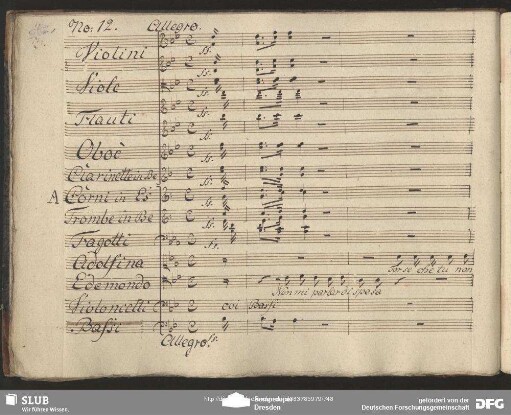 No: 12. Allegro.
Violini
Viole
Flauti
Oboè
Clarinette in Be
A Corni in Es
Trombe in Be
Fagotti
Adolfina
forse che tu non
Edemondo
Non mi parlar di sposa
Violoncelli coi Bassi
Bassi
Allegro.
SLUB
Wir führen Wissen.
Dresden
gefördert von der
Deutschen Forschungsgemeinschaft
DFG